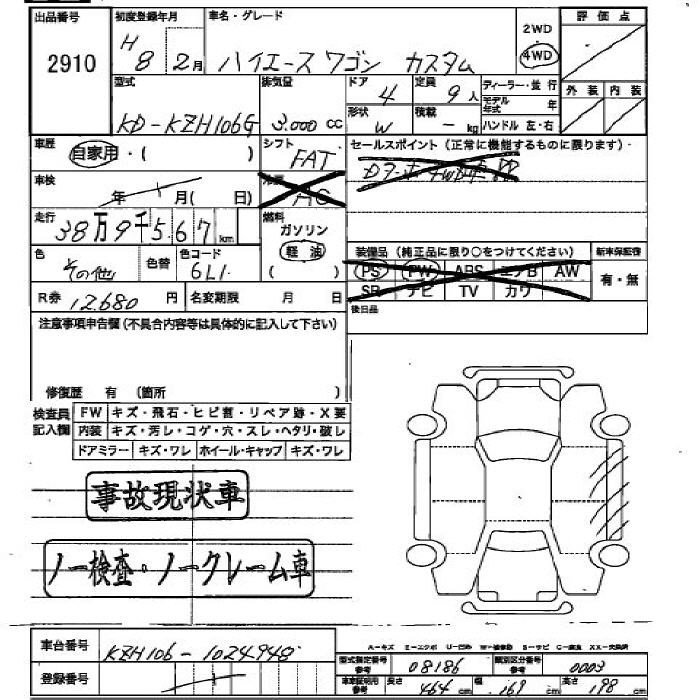 出品番号 初度登録年月 車名・グレード 2WD 評価点
2910 H 8年 2月 ハイエース ワゴン カスタム 4WD
型式 排気量 ドア 定員 ディーラー・並行 外装 内装
KD-KZH106G 3.000 CC 4 9人 モデル年式 年
形状 積載 ハンドル 左・右
W - kg
車歴 自家用・( ) シフト セールスポイント(正常に機能するものに限ります)
FAT
車検 年 月( 日) 冷房 AC
走行 38万9千567 km 燃料 ガソリン 軽油 ( )
色 その他 色替 色コード 6L1 装備品(純正品に限り○をつけてください) 新車保証書
PS PW ABS エアB AW 有・無
R券 12.680 円 名変期限 月 日 SR ナビ TV カワ
注意事項申告欄(不具合内容等は具体的に記入して下さい) 後日品
修復歴 有 (箇所 )
検査員記入欄 FW キズ・飛石・ヒビ割・リペア跡・X要
内装 キズ・汚レ・コゲ・穴・スレ・ヘタリ・破レ
ドアミラー キズ・ワレ ホイール・キャップ キズ・ワレ
事故現状車
ノー検査・ノークレーム車
車台番号 KZH106-1024948
A-キズ E-エクボ U-凹ミ W-補修跡 S-サビ C-腐食 XX-交換済
型式指定番号 参考 08186 類別区分番号 参考 0003
登録番号 車庫証明用 参考 長さ 464 cm 幅 169 cm 高さ 198 cm